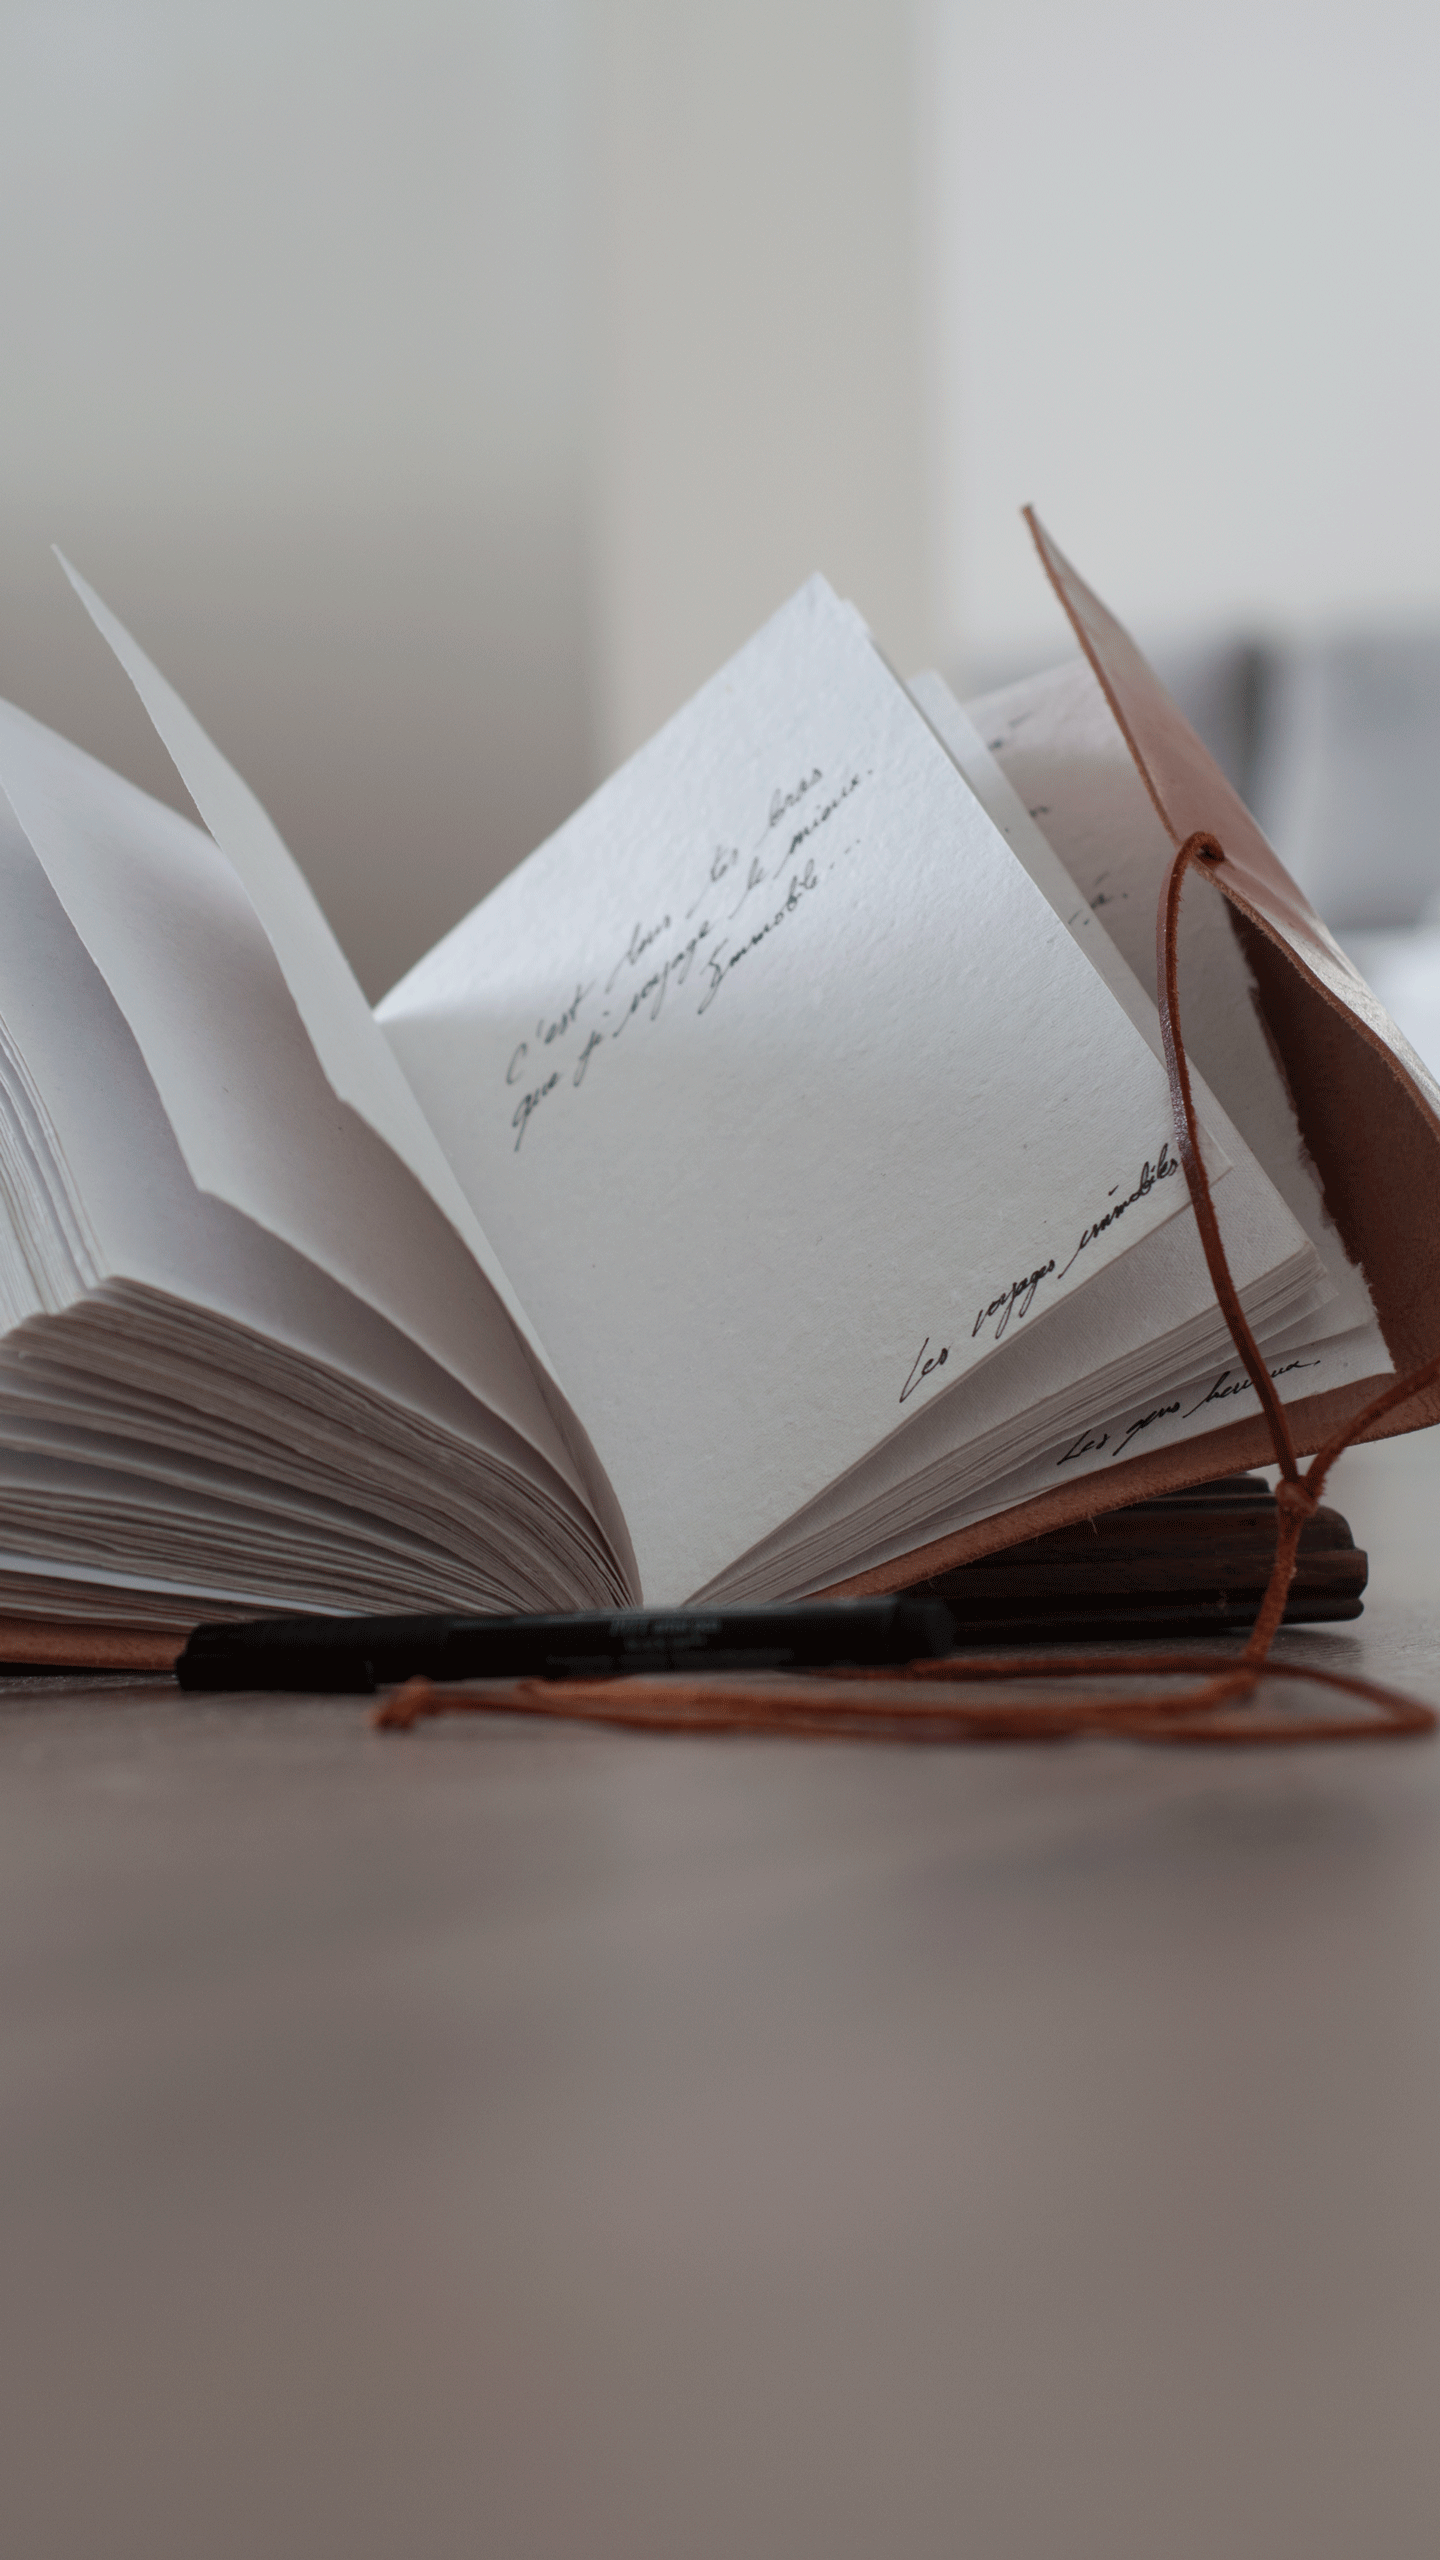 C'est dans tes bras
que je voyage le mieux.
Immobile...
Les voyages immobiles
Les gens heureux.